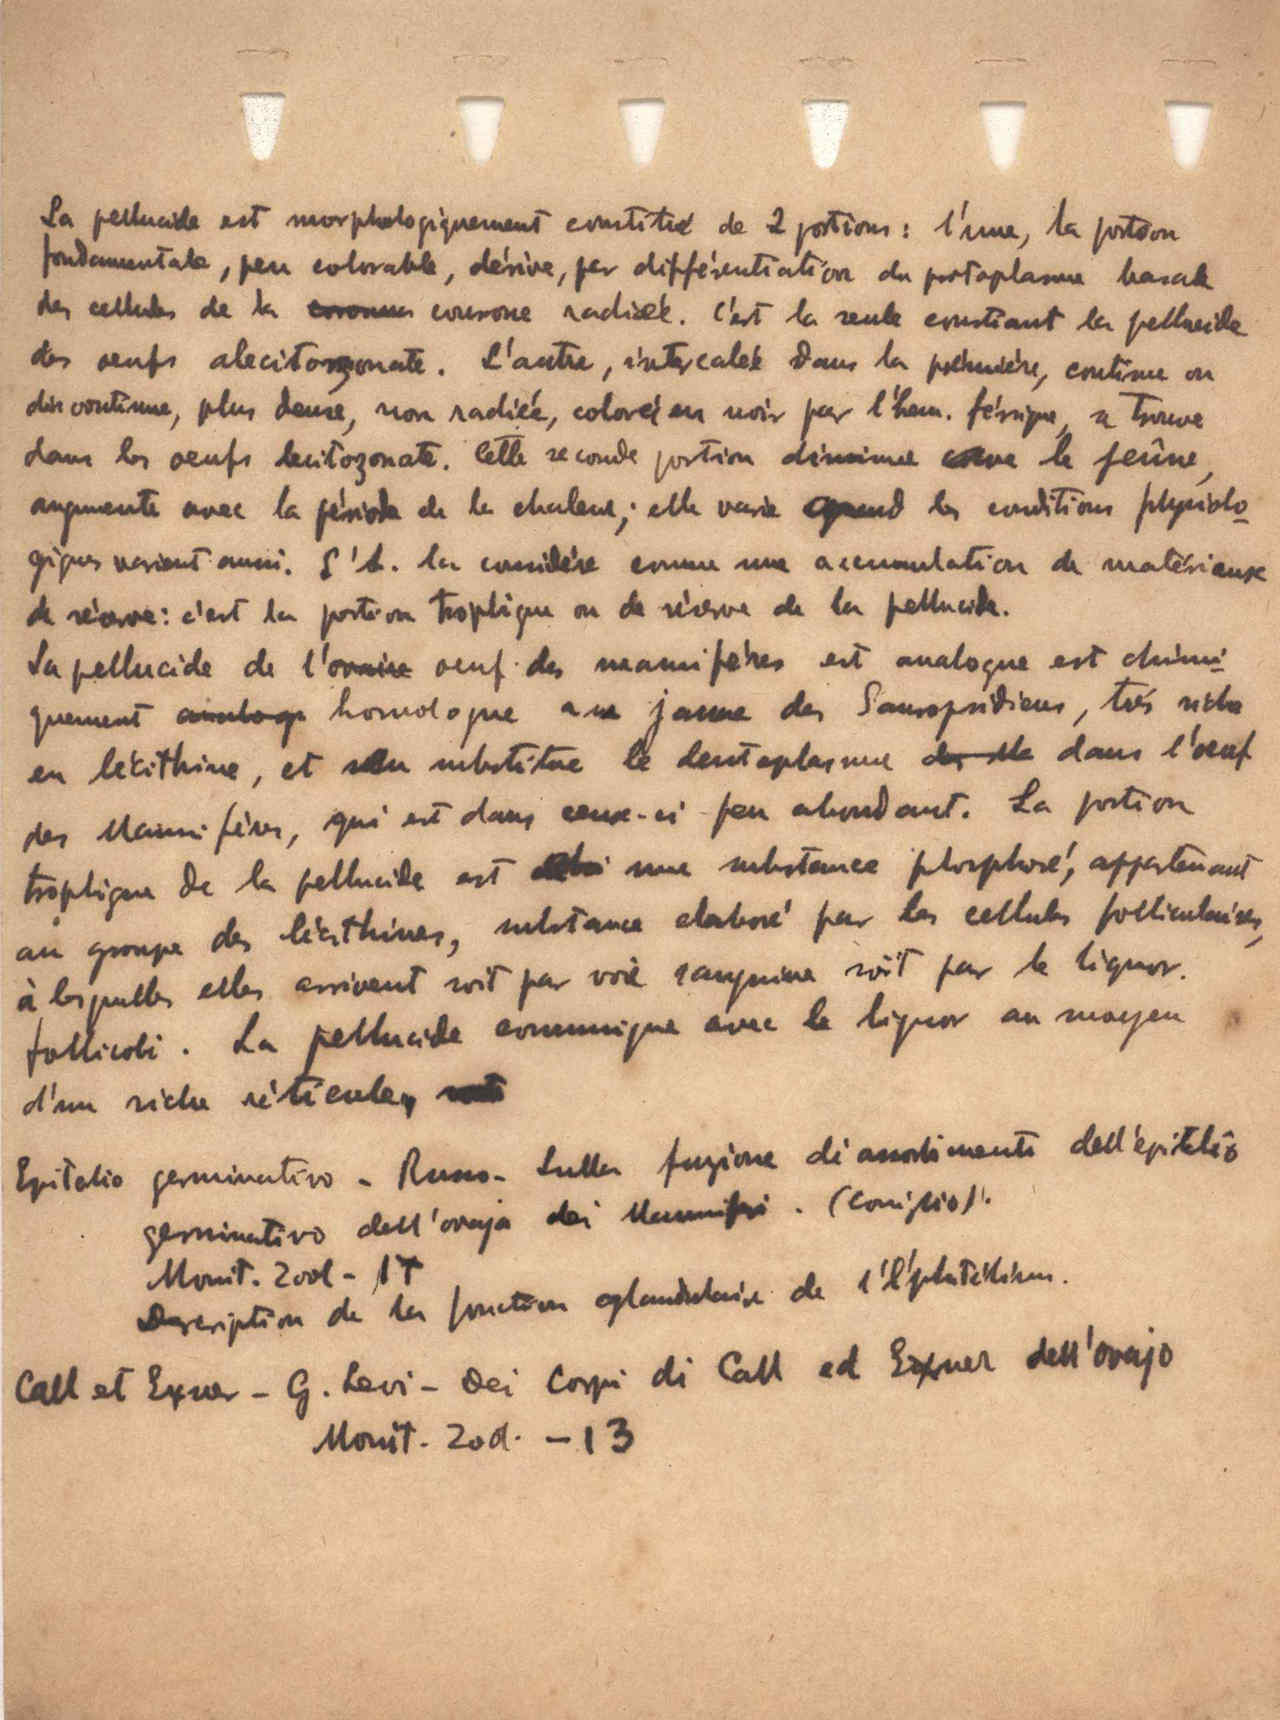 La pellucide est morphologiquement constitué de 2 portions : l'une, la portion
fondamentale, peu colorable, dérive, par différentiation du protoplasme basale
des cellules de la couronne radiée. C'est la seule constiant la pellucide
des oeufs alecitozonate. L'autre, intercalée dans la première, continue ou
discontinue, plus dense, non radiée, colorée en noir par l'hem. férrique, se trouve
dans les oeufs lecitozonate. Cette seconde portion diminue le jeûne,
augmente avec la période de la chaleur; elle varie quand les conditions physiolo-
giques varient aussi. L'A. la considère comme une accumulation de matériaux
de réserve : c'est la portion trophique ou de réserve de la pellucide.
La pellucide de l'ovaire oeuf des mamifères est analogue est chimi-
quement analogu homologue au jaune des Sauropsidiens, très riche
en lécithine, et substitue le deutoplasme dans l'oeuf
des Mammifères, qui est dans ceux-ci peu abondant. La portion
trophique de la pellucide est une substance phosphoré, appartenant
au groupe des lécithines, substance elaboré par les cellules folliculaires,
à lesquelles elles arrivent soit par voie sanguine soit par le liquor.
follicoli. La pellucide communique avec le liquor au moyen
d'un riche réticule,
Epitelio germinativo - Russo - Sulla funzione di assorbimento dell'epitelio
germinativo dell'ovaja dei Mammiferi. (coniglio).
Monit. Zool - 17
Description de la fonction glandulaire de l'épithélium.
Call et Exner - G. Levi - Dei Corpi di Call ed Exner dell'ovajo
Monit. Zool. - 13